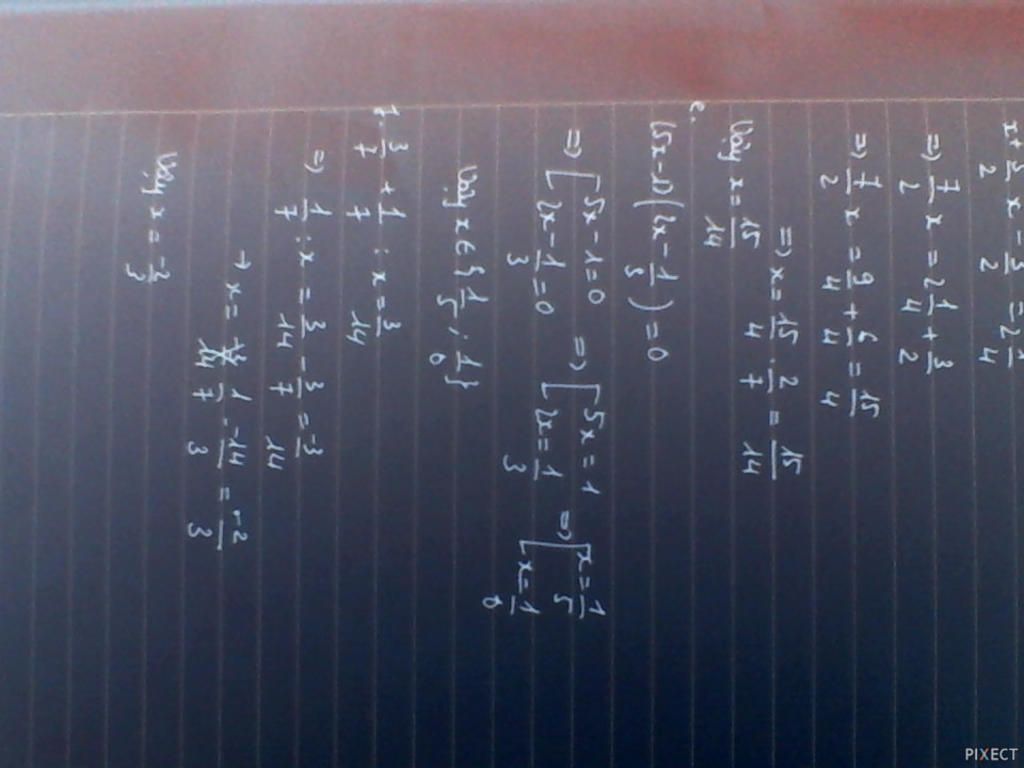 x + 5/2 x - 3/2 = 2 1/4
=> 7/2 x = 2 1/4 + 3/2
=> 7/2 x = 9/4 + 6/4 = 15/4
=> x = 15/4 . 2/7 = 15/14
Vậy x = 15/14
e.
(5x - 1)(2x - 1/3) = 0
=> [ 5x - 1 = 0 => [ 5x = 1 => [ x = 1/5
2x - 1/3 = 0 2x = 1/3 x = 1/6
Vậy x ∈ { 1/5 ; 1/6 }
f. 3/7 + 1/7 : x = 3/14
=> 1/7 : x = 3/14 - 3/7 = -3/14
-> x = 1/7 . -14/3 = -2/3
Vậy x = -2/3
PIXECT